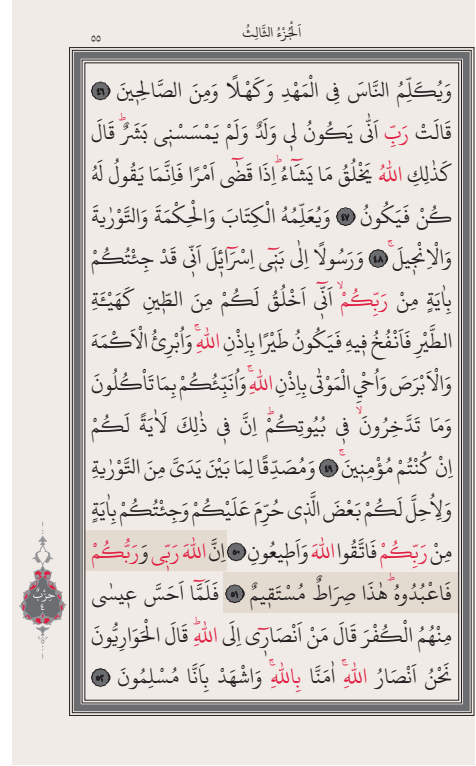 اَلْجُزْءُ الثَّالِثُ
٥٥
وَيُكَلِّمُ النَّاسَ فِى الْمَهْدِ وَكَهْلًا وَمِنَ الصَّالِحٖينَ ٤٦
قَالَتْ رَبِّ اَنّٰى يَكُونُ لٖى وَلَدٌ وَلَمْ يَمْسَسْنٖى بَشَرٌۜ قَالَ
كَذٰلِكِ اللّٰهُ يَخْلُقُ مَا يَشَٓاءُۜ اِذَا قَضٰٓى اَمْرًا فَاِنَّمَا يَقُولُ لَهُ
كُنْ فَيَكُونُ ٤٧ وَيُعَلِّمُهُ الْكِتَابَ وَالْحِكْمَةَ وَالتَّوْرٰيةَ
وَالْاِنْجٖيلَۚ ٤٨ وَرَسُولًا اِلٰى بَنٖٓى اِسْرَٓائٖلَ اَنّٖى قَدْ جِئْتُكُمْ
بِاٰيَةٍ مِنْ رَبِّكُمْۙ اَنّٖٓى اَخْلُقُ لَكُمْ مِنَ الطّٖينِ كَهَيْـَٔةِ
الطَّيْرِ فَاَنْفُخُ فٖيهِ فَيَكُونُ طَيْرًا بِاِذْنِ اللّٰهِۚ وَاُبْرِئُ الْاَكْمَهَ
وَالْاَبْرَصَ وَاُحْيِ الْمَوْتٰى بِاِذْنِ اللّٰهِۚ وَاُنَبِّئُكُمْ بِمَا تَأْكُلُونَ
وَمَا تَدَّخِرُونَۙ فٖى بُيُوتِكُمْۜ اِنَّ فٖى ذٰلِكَ لَاٰيَةً لَكُمْ
اِنْ كُنْتُمْ مُؤْمِنٖينَۚ ٤٩ وَمُصَدِّقًا لِمَا بَيْنَ يَدَىَّ مِنَ التَّوْرٰيةِ
وَلِاُحِلَّ لَكُمْ بَعْضَ الَّذٖى حُرِّمَ عَلَيْكُمْ وَجِئْتُكُمْ بِاٰيَةٍ
مِنْ رَبِّكُمْ فَاتَّقُوا اللّٰهَ وَاَطٖيعُونِ ٥٠ اِنَّ اللّٰهَ رَبّٖى وَرَبُّكُمْ
فَاعْبُدُوهُۜ هٰذَا صِرَاطٌ مُسْتَقٖيمٌ ٥١ فَلَمَّٓا اَحَسَّ عٖيسٰى
مِنْهُمُ الْكُفْرَ قَالَ مَنْ اَنْصَارٖٓى اِلَى اللّٰهِۜ قَالَ الْحَوَارِيُّونَ
نَحْنُ اَنْصَارُ اللّٰهِۚ اٰمَنَّا بِاللّٰهِۚ وَاشْهَدْ بِاَنَّا مُسْلِمُونَ ٥٢
حِزْبٌ
٤